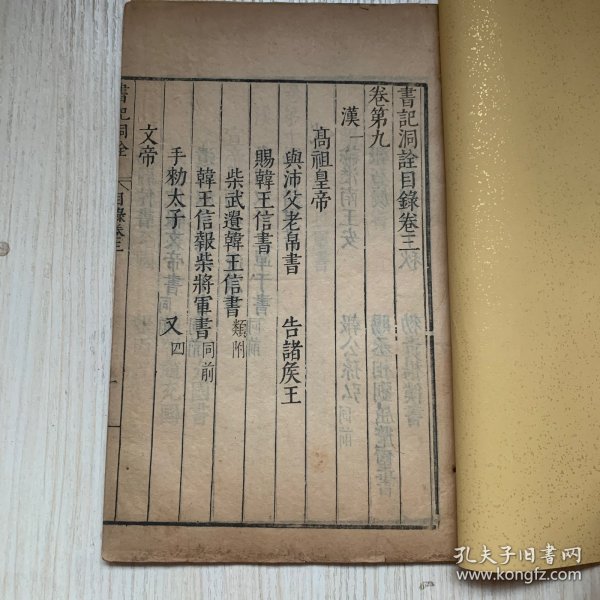 書記洞詮目錄卷三
卷第九
漢一
高祖皇帝
與沛父老帛書 告諸侯王
賜韓王信書
柴武遺韓王信書 類附
韓王信報柴將軍書 同前
手勑太子 又四
文帝
書記洞詮 目錄卷三
孔夫子旧书网
www.kongfz.com